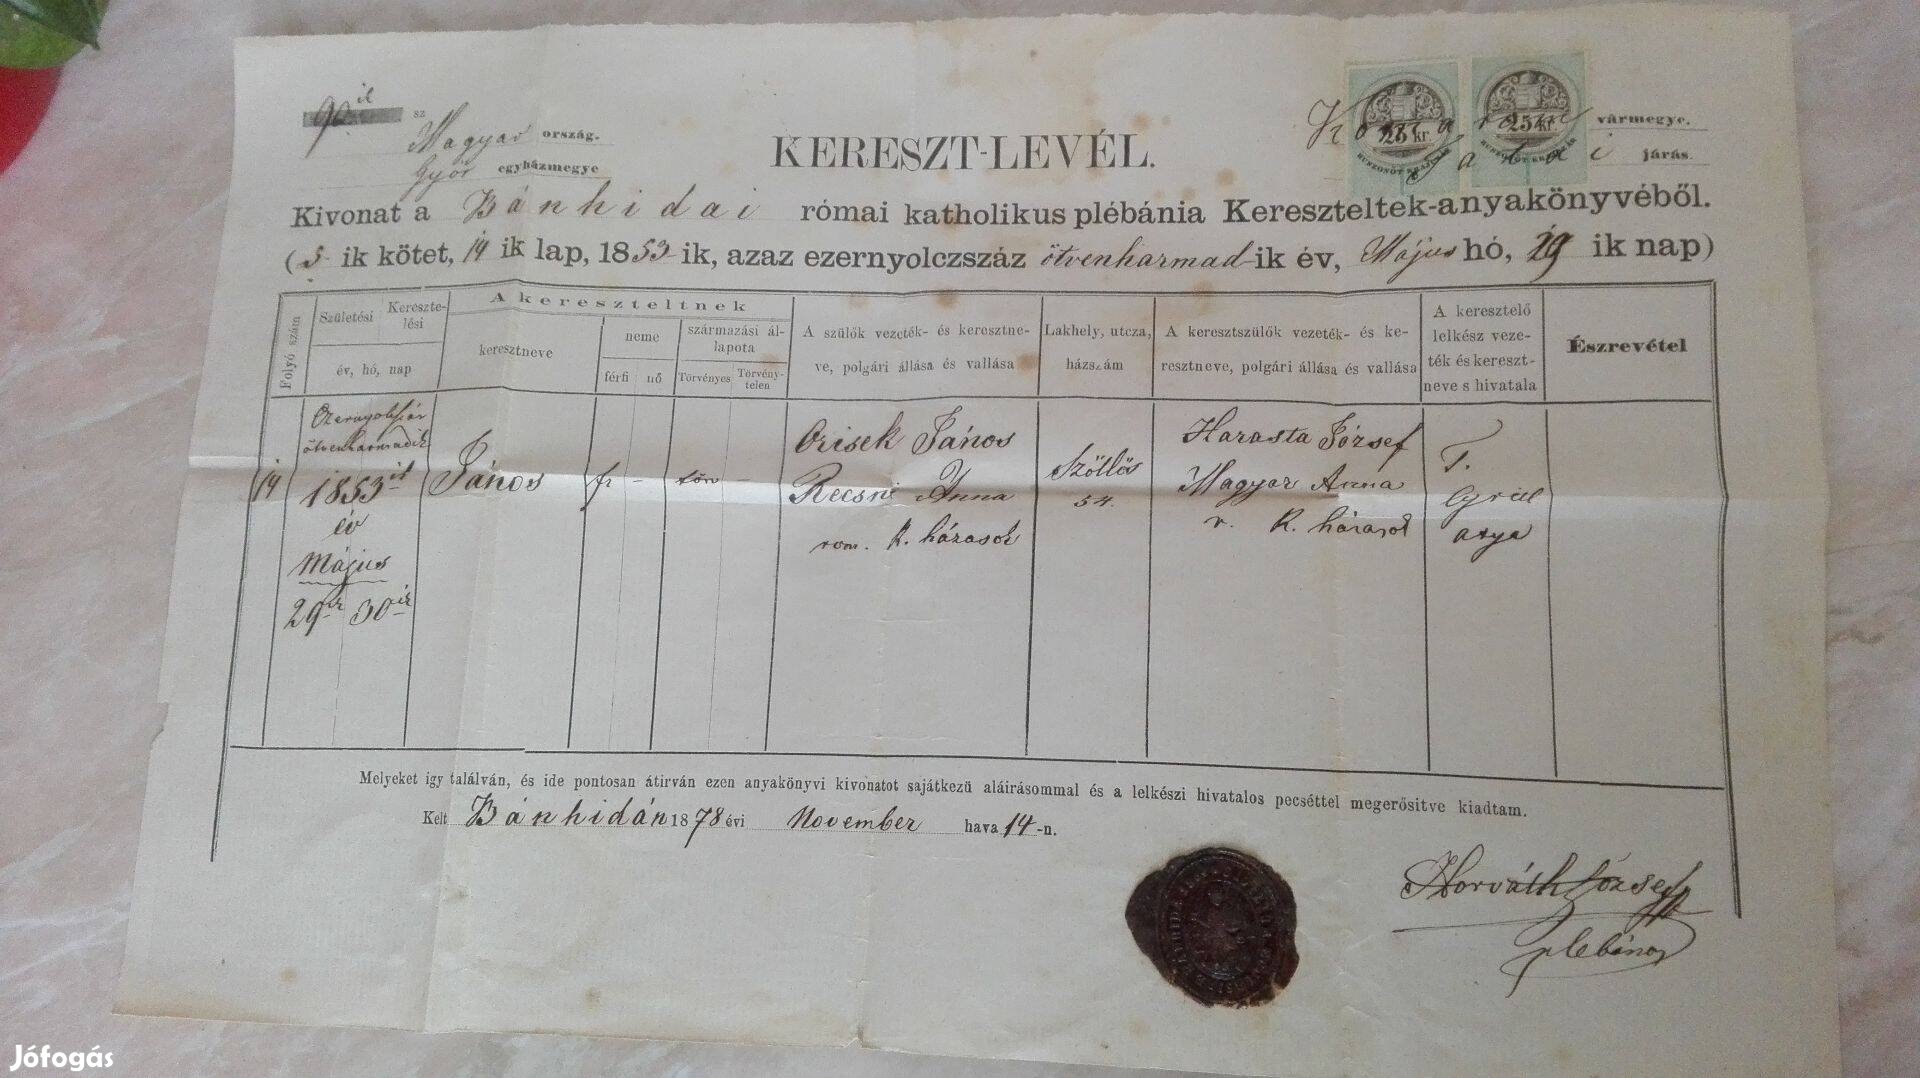 90 il sz
Magyar ország.
Győr egyházmegye
KERESZT-LEVÉL.
25 kr.
HUSZONÖT KRAJCZÁR
25 kr.
HUSZONÖT KRAJCZÁR
Komárom vármegye.
Tatai járás.
Kivonat a Bánhidai római katholikus plébánia Kereszteltek-anyakönyvéből.
(5 ik kötet, 14 ik lap, 1853 ik, azaz ezernyolczszáz ötvenharmad-ik év, Május hó, 29 ik nap)
Folyó szám
Születési
Keresztelési
év, hó, nap
A kereszteltnek
keresztneve
neme
férfi
nő
származási állapota
Törvényes
Törvénytelen
A szülők vezeték- és keresztneve, polgári állása és vallása
Lakhely, utcza, házszám
A keresztszülők vezeték- és keresztneve, polgári állása és vallása
A keresztelő lelkész vezeték és keresztneve s hivatala
Észrevétel
14
ötvenharmadik
1853 ik
év
Május
29ik 30ik
János
fi -
törv -
Orisek János
Recsni Anna
rom. K. házasok
Szőllős
54.
Harasta József
Magyar Anna
r. K. házasok
T.
Cyrill
atya
Melyeket igy találván, és ide pontosan átirván ezen anyakönyvi kivonatot sajátkezü aláirásommal és a lelkészi hivatalos pecséttel megerősitve kiadtam.
Kelt Bánhidán 1878 évi November hava 14-n.
Horváth József
plebános
Jófogás